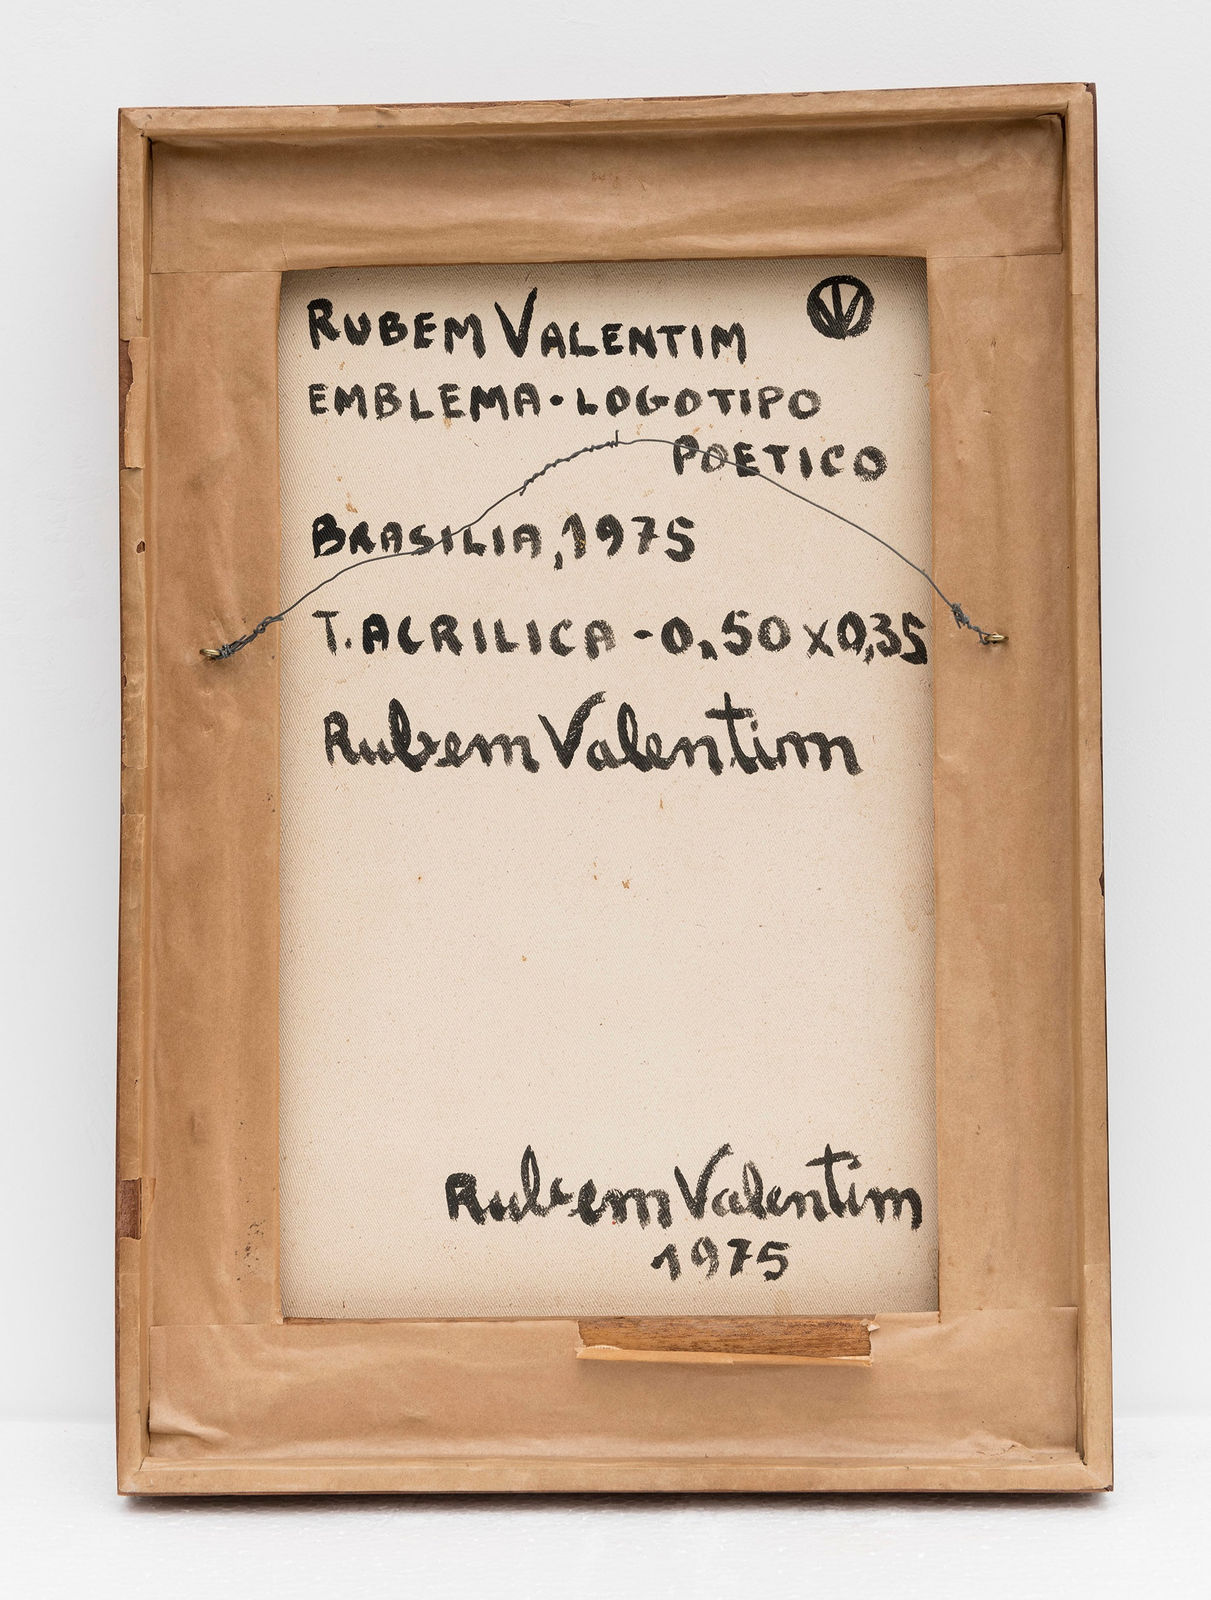 RUBEM VALENTIM
EMBLEMA·LOGOTIPO
POETICO
BRASILIA, 1975
T. ACRILICA - 0,50 x 0,35
Rubem Valentim
Rubem Valentim
1975